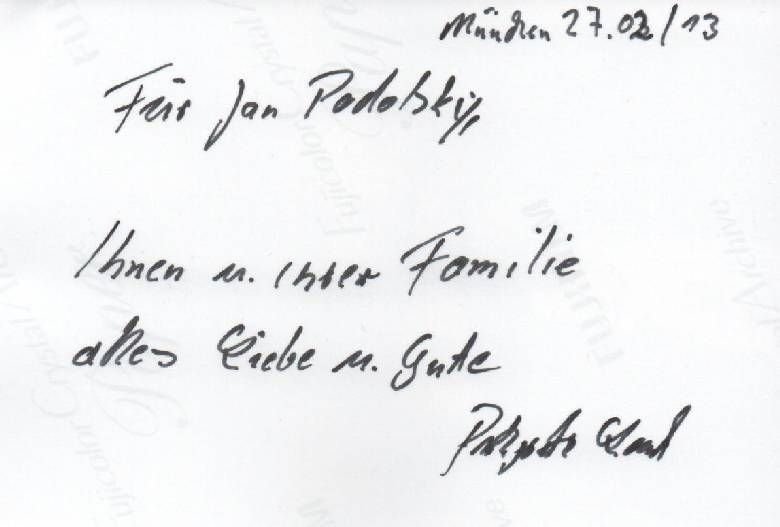 München 27.02/13
Für Jan Podolski,
Ihnen u. Ihrer Familie
alles Liebe u. Gute